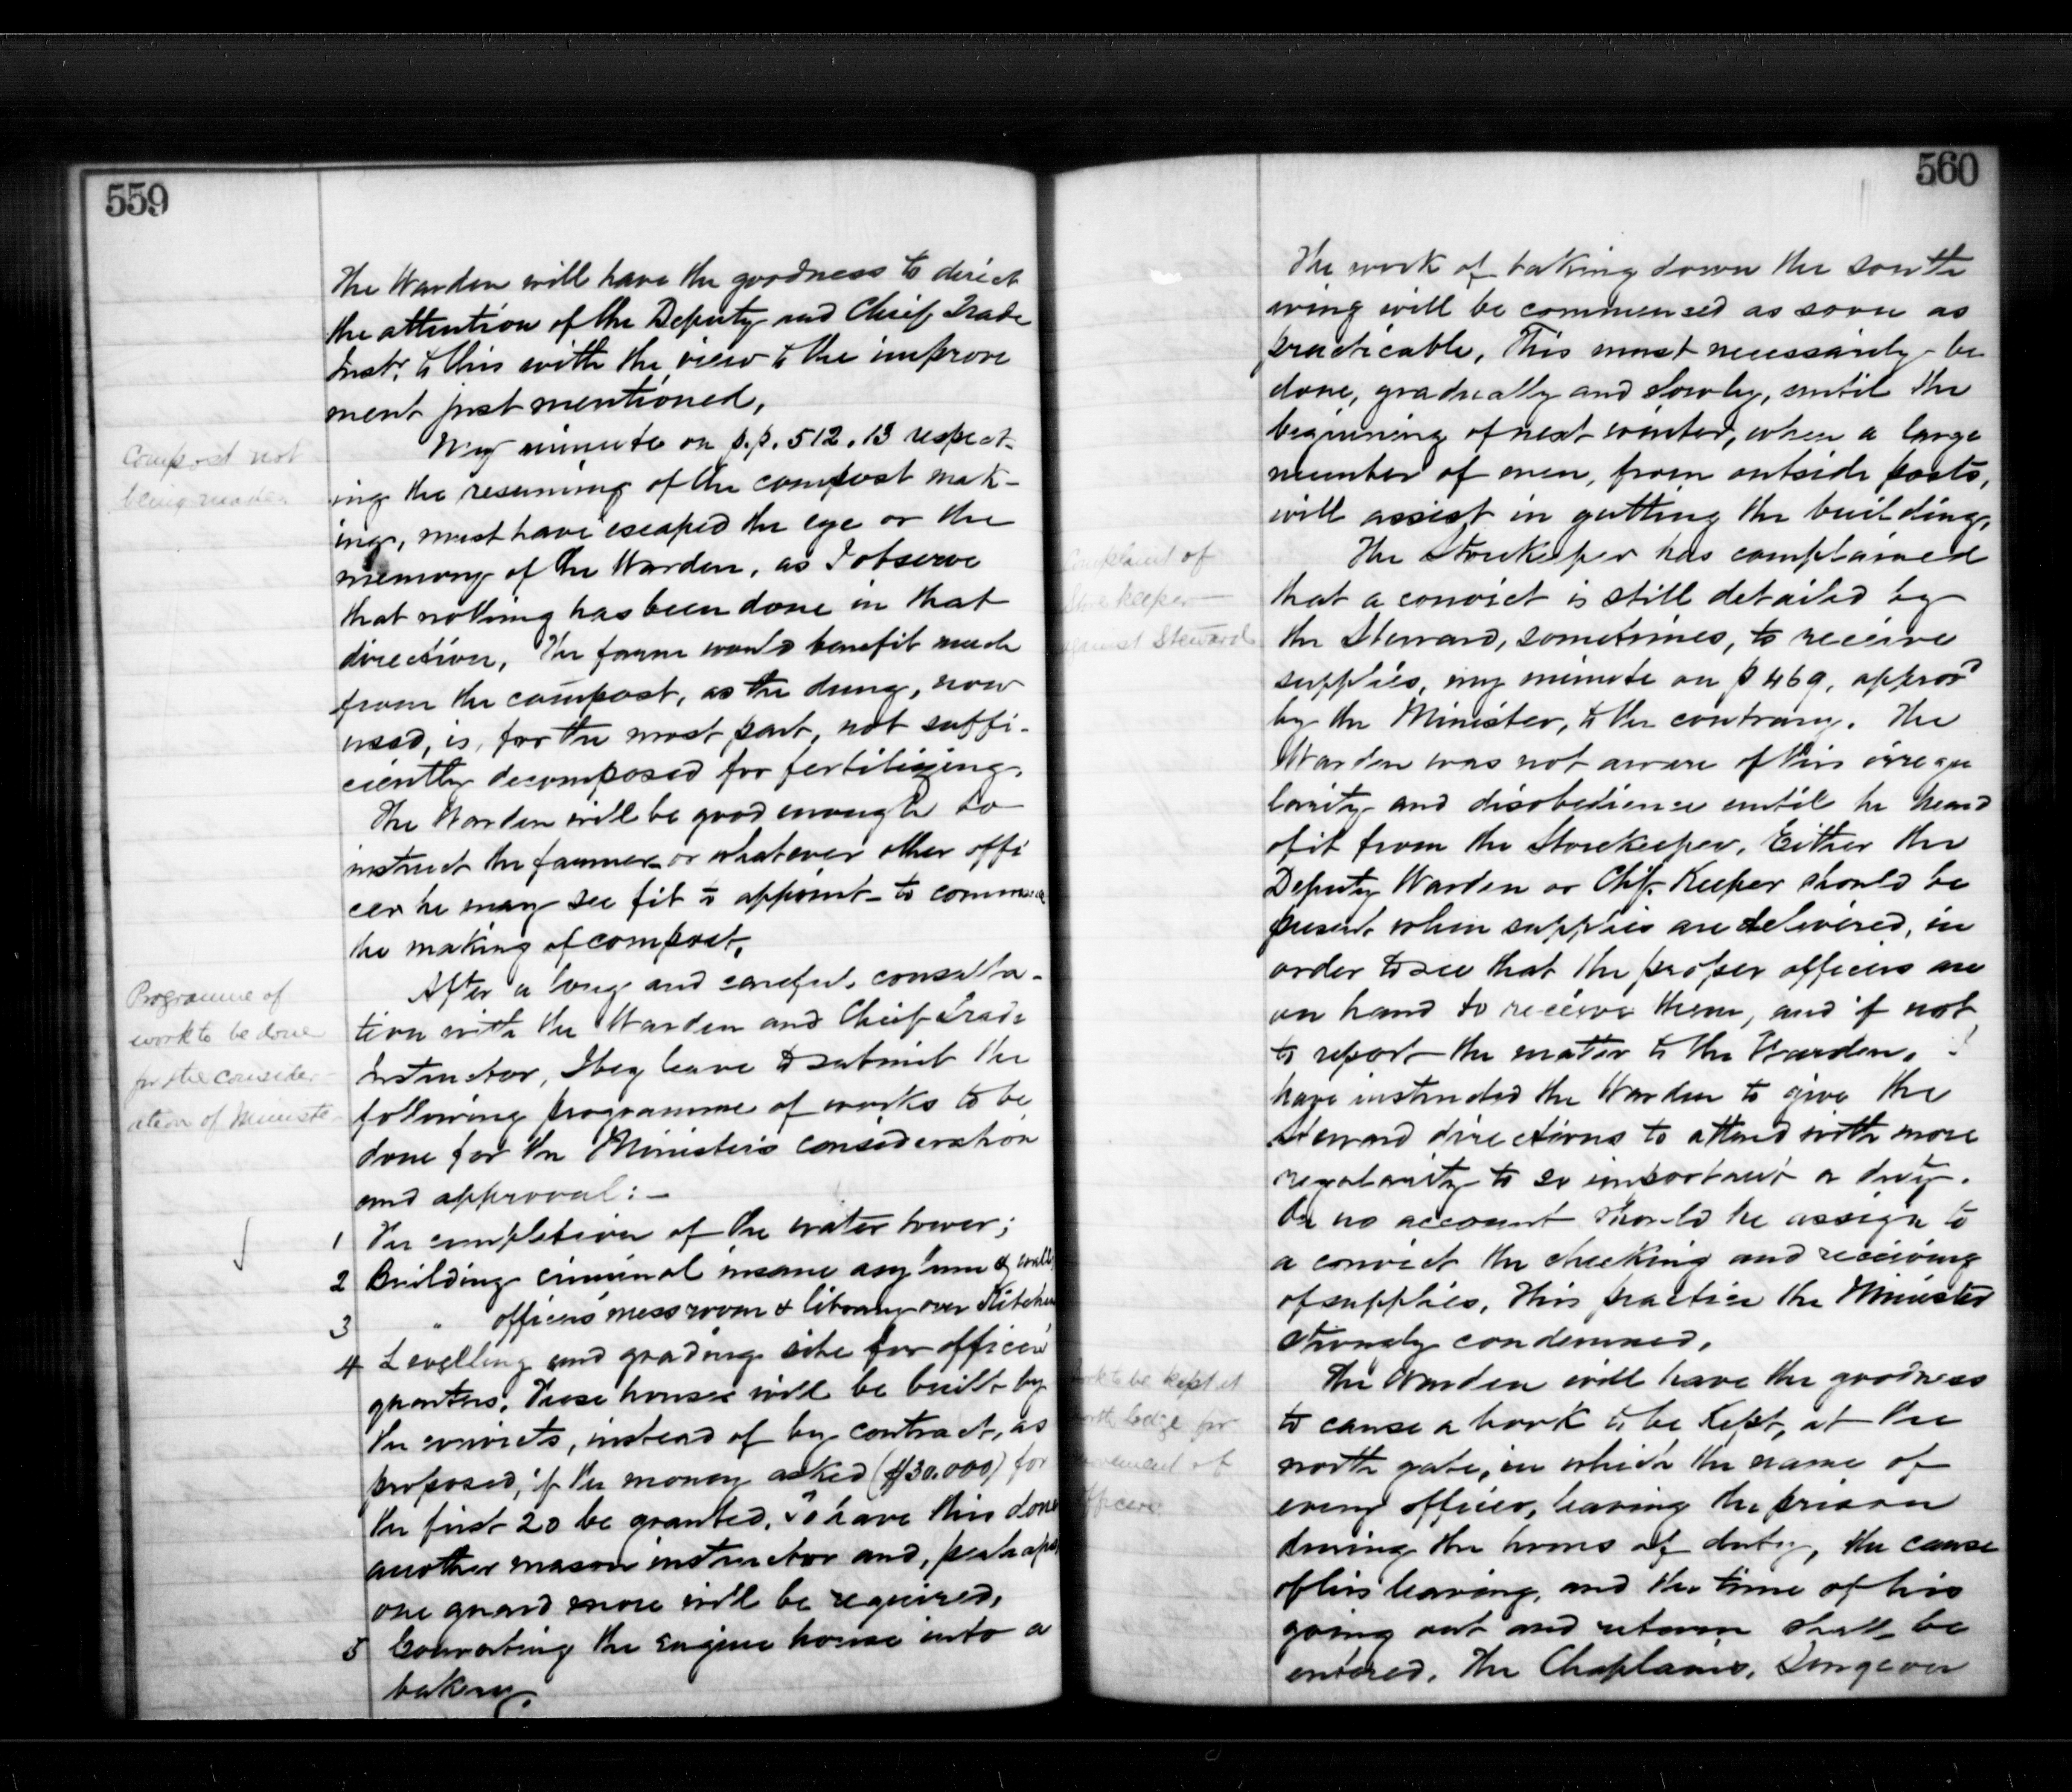 559
The Warden will have the goodness to direct
the attention of the Deputy and Chief Trade
Instr. to this with the view to the improve
ment just mentioned,
Compost not
being made
My minute on p.p. 512.13 respect-
ing the resuming of the compost mak-
ing, must have escaped the eye or the
memory of the Warden, as I observe
that nothing has been done in that
direction, The farm would benefit much
from the compost, as the dung, now
used, is, for the most part, not suffi-
ciently decomposed for fertilizing.
The Warden will be good enough to
instruct the farmer or whatever other offi
cer he may see fit to appoint to commence
the making of compost.
Programme of
work to be done
for the consider-
ation of Ministe-
After a long and careful consulta-
tion with the Warden and Chief Trade
Instructor, I beg leave to submit the
following programme of works to be
done for the Minister's consideration
and approval:-
1 The completion of the water tower;
2 Building criminal insane asylum & walls
3 " officers' messroom & library over Kitchen
4 Levelling and grading site for officers'
quarters. These houses will be built by
the convicts, instead of by contract, as
proposed, if the money asked ($30.000) for
the first 20 be granted. To have this done
another mason instructor and, perhaps,
one guard more will be required.
5 Converting the engine house into a
bakery.
560
The work of taking down the south
wing will be commenced as soon as
practicable, This must necessarily be
done, gradually and slowly, until the
beginning of next winter, when a large
number of men, from outside posts,
will assist in gutting the building.
Complaint of
Storekeeper
against Steward
The Storekeeper has complained
that a convict is still detailed by
the Steward, sometimes, to receive
supplies, my minute on p 469, approv'd
by the Minister, to the contrary. The
Warden was not aware of this irregu
larity and disobedience until he heard
of it from the Storekeeper. Either the
Deputy Warden or Chf. Keeper should be
present when supplies are delivered, in
order to see that the proper officers are
on hand to receive them, and if not,
to report the matter to the Warden. I
have instructed the Warden to give the
Steward directions to attend with more
regularity to so important a duty.
On no account should he assign to
a convict the checking and receiving
of supplies. This practice the Minister
strongly condemned.
Book to be kept at
north lodge for
movement of
officers
The Warden will have the goodness
to cause a book to be kept, at the
north gate, in which the name of
every officer, leaving the prison
during the hours of duty, the cause
of his leaving, and the time of his
going out and return shall be
entered. The Chaplains, Surgeon